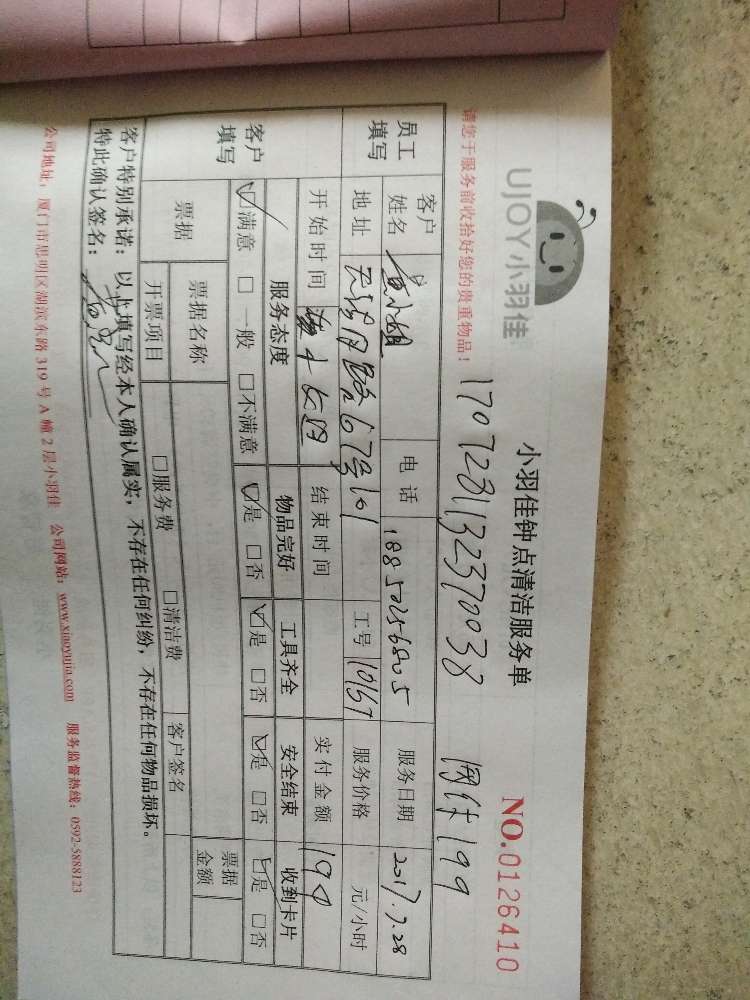 UJOY小羽佳
小羽佳钟点清洁服务单
NO.0126410
1707281132370038 网付199
请您于服务前收拾好您的贵重物品！
员工填写 客户姓名 小姐 电话 18850256805 服务日期 2017.7.28
地址 路67号101 工号 10167 服务价格 元/小时
开始时间 结束时间 实付金额 199
客户填写 服务态度 物品完好 工具齐全 安全结束 收到卡片
☑满意 □一般 □不满意 ☑是 □否 ☑是 □否 ☑是 □否 ☑是 □否
票据 票据名称 票据金额
开票项目 □服务费 □清洁费 客户签名
客户特别承诺：以上填写经本人确认属实，不存在任何纠纷，不存在任何物品损坏。
特此确认签名：
公司地址：厦门市思明区湖滨东路319号A幢2层小羽佳 公司网站：www.xiaoyujia.com 服务监督热线：0592-5888123